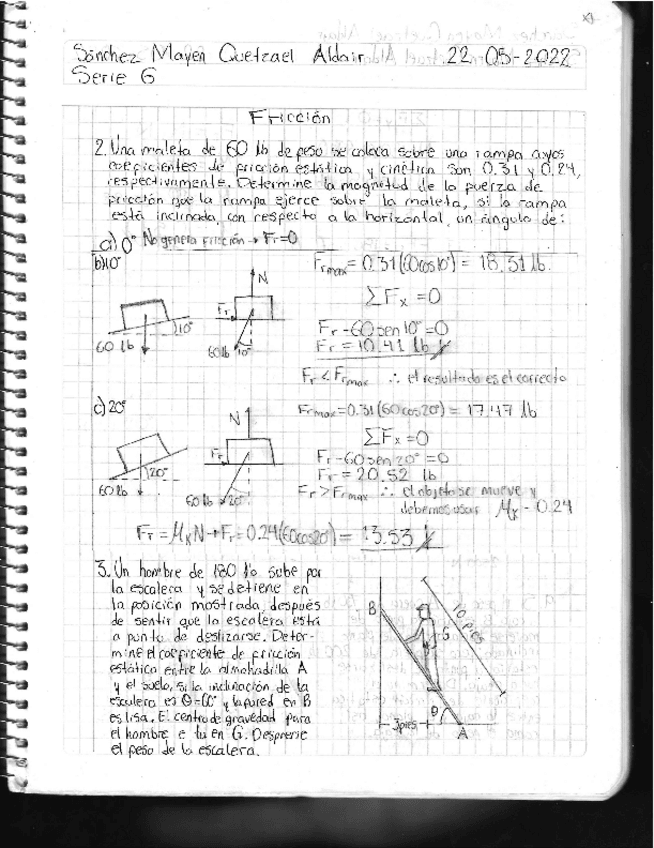 Sánchez Mayen Quetzael Aldair 22-05-2022
Serie 6
Fricción
2. Una maleta de 60 lb de peso se coloca sobre una rampa cuyos
coeficientes de fricción estática y cinética son 0.31 y 0.24,
respectivamente. Determine la magnitud de la fuerza de
fricción que la rampa ejerce sobre la maleta, si la rampa
está inclinada, con respecto a la horizontal, un ángulo de:
a) 0° No genera fricción → Fr=0
b) 10°
Fr max = 0.31(60cos10°) = 18.31 lb.
ΣFx = 0
Fr - 60 sen 10° = 0
Fr = 10.41 lb
Fr < Fr max ∴ el resultado es el correcto
N
Fr
10°
60 lb
60 lb 10°
c) 20°
Fr max = 0.31(60cos20°) = 17.47 lb
ΣFx = 0
Fr - 60 sen 20° = 0
Fr = 20.52 lb
Fr > Fr max ∴ el objeto se mueve y
debemos usar μk = 0.24
N
Fr
20°
60 lb
60 lb 20°
Fr = μk N → Fr = 0.24(60cos20°) = 13.53
3. Un hombre de 180 lb sube por
la escalera y se detiene en
la posición mostrada, después
de sentir que la escalera está
a punto de deslizarse. Deter-
mine el coeficiente de fricción
estática entre la almohadilla A
y el suelo, si la inclinación de la
escalera es θ=60° y la pared en B
es lisa. El centro de gravedad para
el hombre
en G. Desprecie
el peso de la escalera.
B
10 pies
G
3pies
θ
A